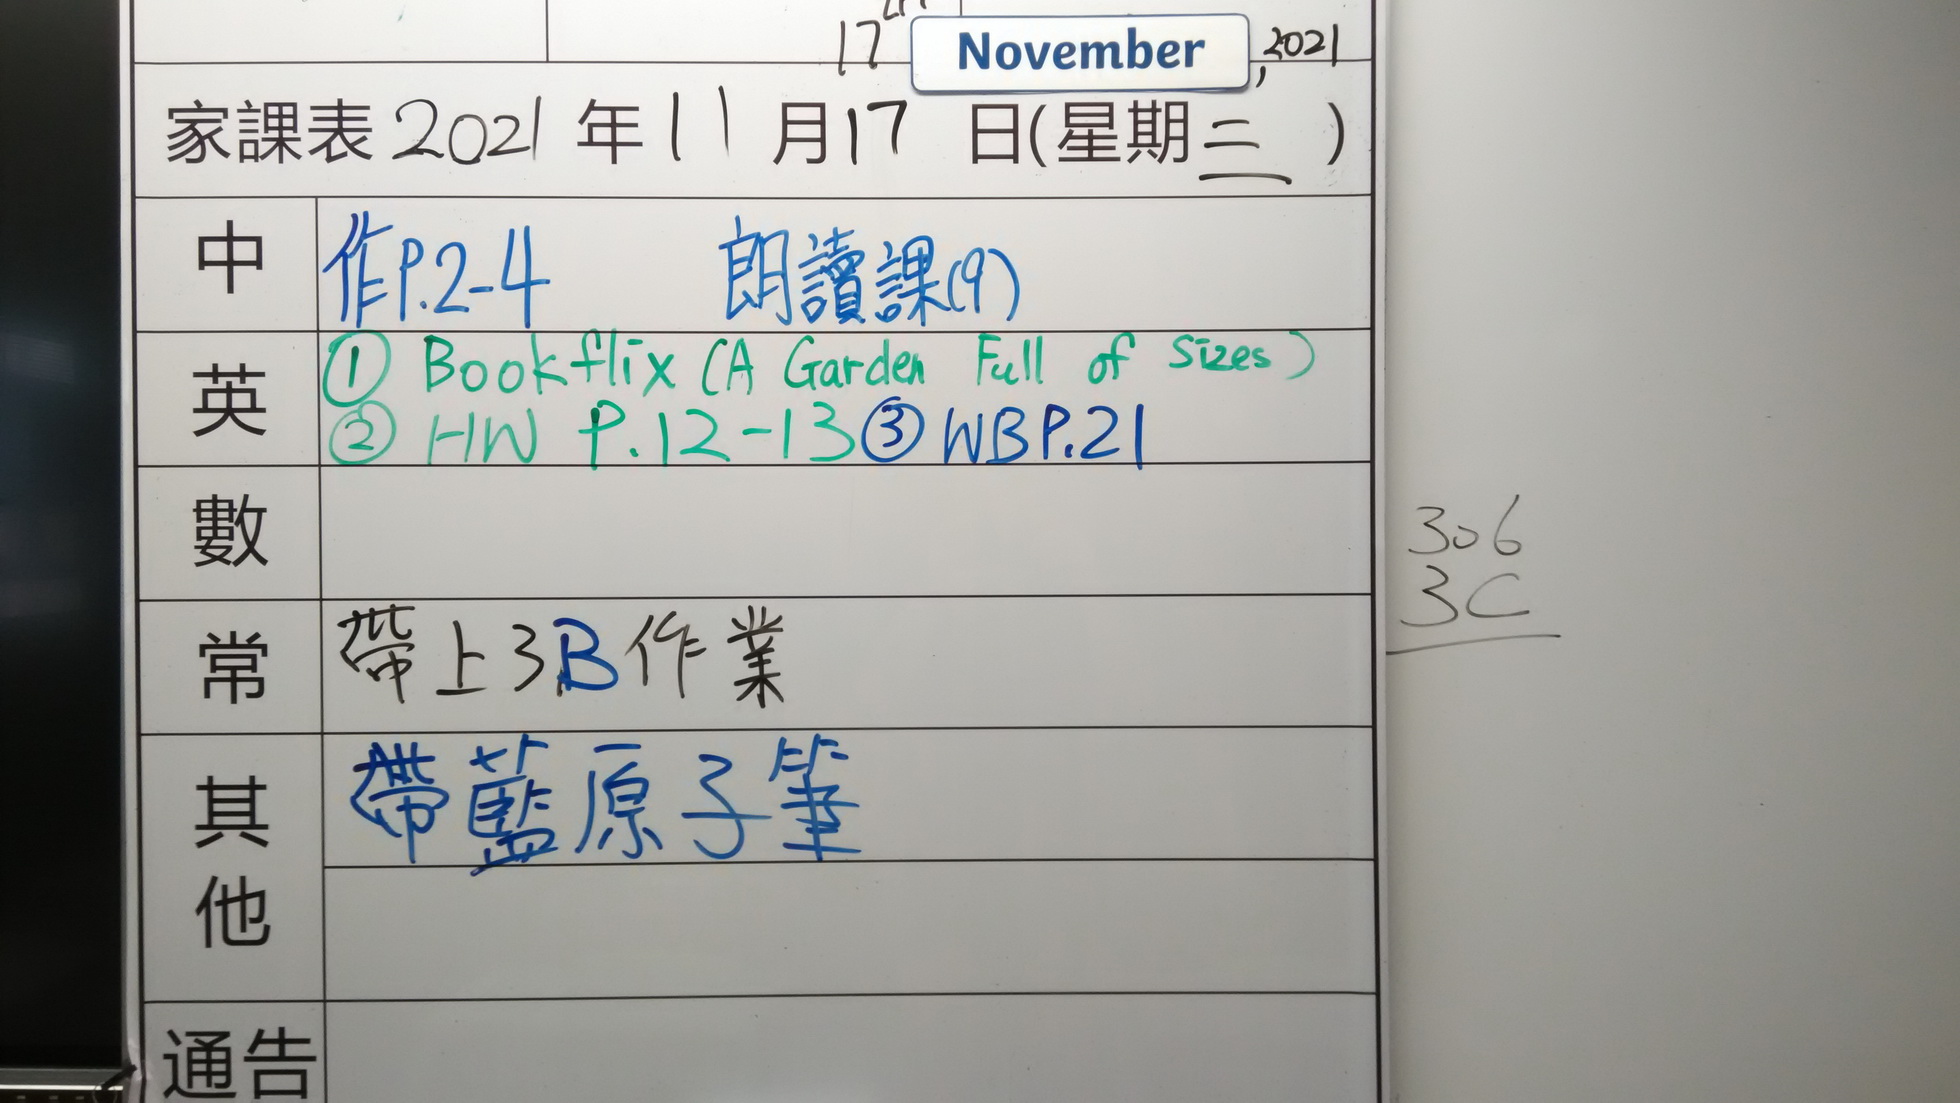 17th November, 2021
家課表 2021 年 11 月 17 日(星期三)
中 作P.2-4 朗讀課(9)
英 ① Bookflix (A Garden Full of Sizes)
② HW P.12-13 ③ WB P.21
數
常 帶上3B作業
其他 帶藍原子筆
通告
306
3C